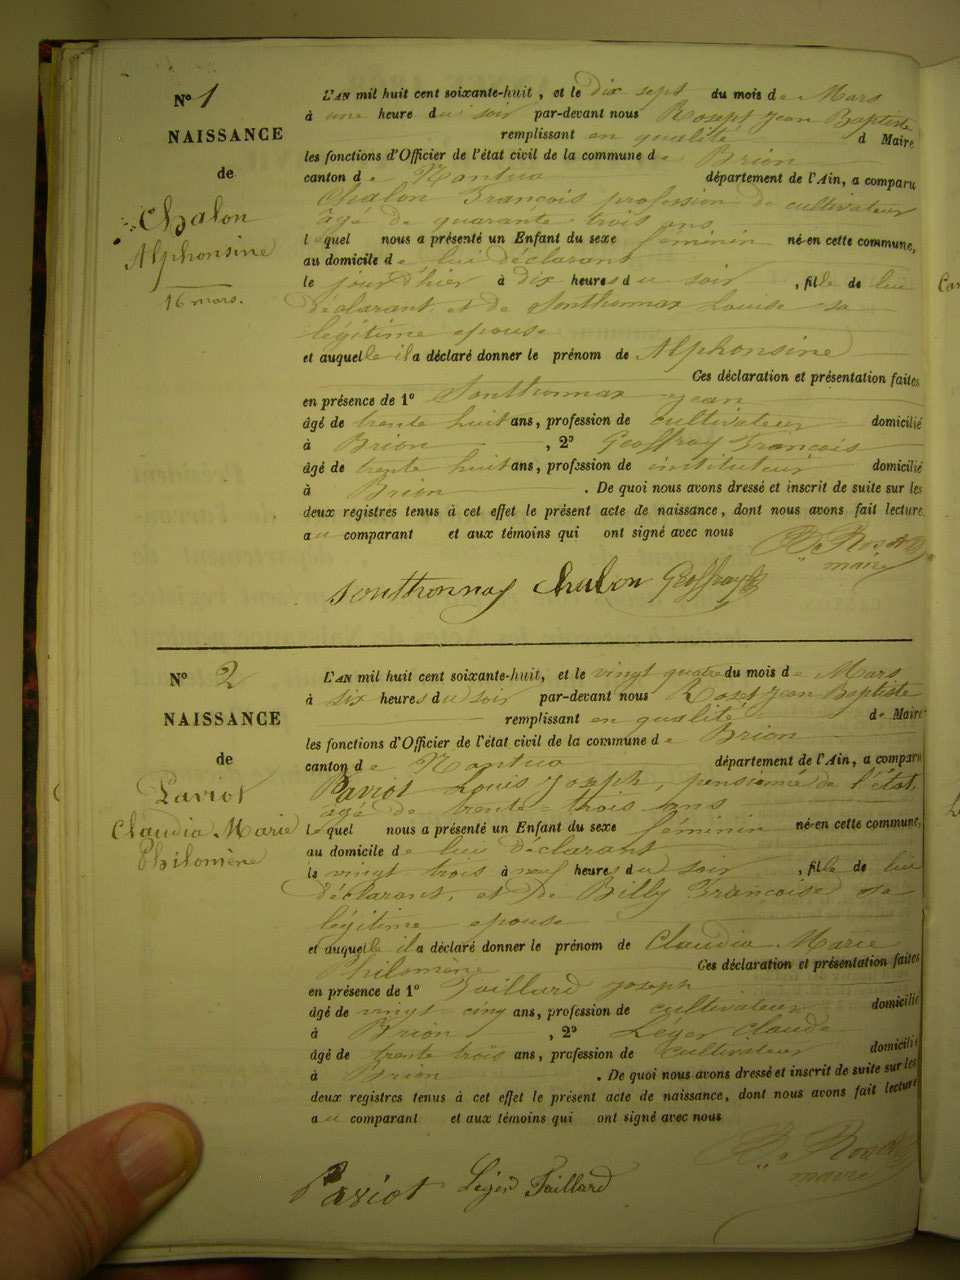 N° 1
NAISSANCE
de
Chalon
Alphonsine
16 mars.
L'AN mil huit cent soixante-huit, et le dix sept du mois de Mars
à une heure du soir par-devant nous Roseph Jean Baptiste
remplissant en qualité d Maire
les fonctions d'Officier de l'état civil de la commune de Brion
canton de Nantua département de l'Ain, a comparu
Chalon Francois profession de cultivateur
âgé de quarante trois ans
lequel nous a présenté un Enfant du sexe féminin né en cette commune,
au domicile de lui déclarant
le jour d'hier à dix heures du soir, fille de lui
déclarant et de Sonthonnax Louise sa
légitime epouse
et auquelle il a déclaré donner le prénom de Alphonsine
Ces déclaration et présentation faites
en présence de 1° Sonthonnax Jean
âgé de trente huit ans, profession de cultivateur domicilié
à Brion, 2° Geoffray Francois
âgé de trente huit ans, profession de instituteur domicilié
à Brion. De quoi nous avons dressé et inscrit de suite sur les
deux registres tenus à cet effet le présent acte de naissance, dont nous avons fait lecture
au comparant et aux témoins qui ont signé avec nous
maire
Sonthonnax Chalon Geoffray
N° 2
NAISSANCE
de
Paviot
Claudia Marie
Philomène
L'AN mil huit cent soixante-huit, et le vingt quatre du mois de Mars
à six heures du soir par-devant nous Roset Jean Baptiste
remplissant en qualité de Maire
les fonctions d'Officier de l'état civil de la commune de Brion
canton de Nantua département de l'Ain, a comparu
Paviot Louis Joseph, pensionné de l'état,
âgé de trente-trois ans
lequel nous a présenté un Enfant du sexe féminin né en cette commune,
au domicile de lui déclarant
le vingt trois à neuf heures du soir, fille de lui
déclarant, et de Billy Francoise sa
légitime epouse
et auquelle il a déclaré donner le prénom de Claudia Marie
Philomène Ces déclaration et présentation faites
en présence de 1° Taillard Joseph
âgé de vingt cinq ans, profession de cultivateur domicilié
à Brion, 2° Leger Claude
âgé de trente trois ans, profession de cultivateur domicilié
à Brion. De quoi nous avons dressé et inscrit de suite sur les
deux registres tenus à cet effet le présent acte de naissance, dont nous avons fait lecture
au comparant et aux témoins qui ont signé avec nous
maire
Paviot Léger Taillard